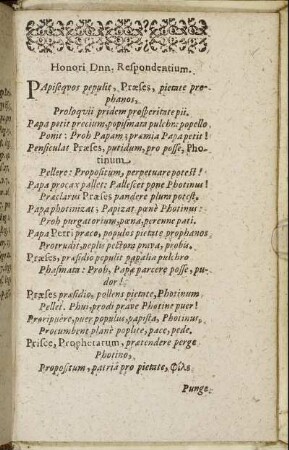 Honori Dnn. Respondentium.
PApiseqvos pepulit, Præses, pietate pro-
phanos,
Proloqvii pridem prosperitate pii.
Papa petit precium, popismata pulchra: popello
Ponit: Proh Papam; præmia Papa petit!
Pensiculat Præses, putidum, pro posse, Pho-
tinum
Pellere: Propositum, perpetuare potest!
Papa procax pallet: Pallescet pone Photinus!
Præclarus Præses pandere plura potest.
Papa photinizat: Papizat pone Photinus:
Proh purgatorium, pœna, perenne pati.
Papa Petri præco, populos pietate prophanos
Protrudit, pectora prava, probis.
Præses, præsidio pepulit papalia pulchro
Phasmata: Proh, Papæ parcere posse, pu-
dor!
Præses præsidio, pollens pietate, Photinum
Pellet. Phui, prodi prave Photine puer!
Proripuere, puer populus, papista, Photinus,
Procumbent planè poplite, pace, pede.
Prisce, Prophetarum, prætendere perge
Photino,
Propositum, patriâ pro pietate, φίλε
Punge